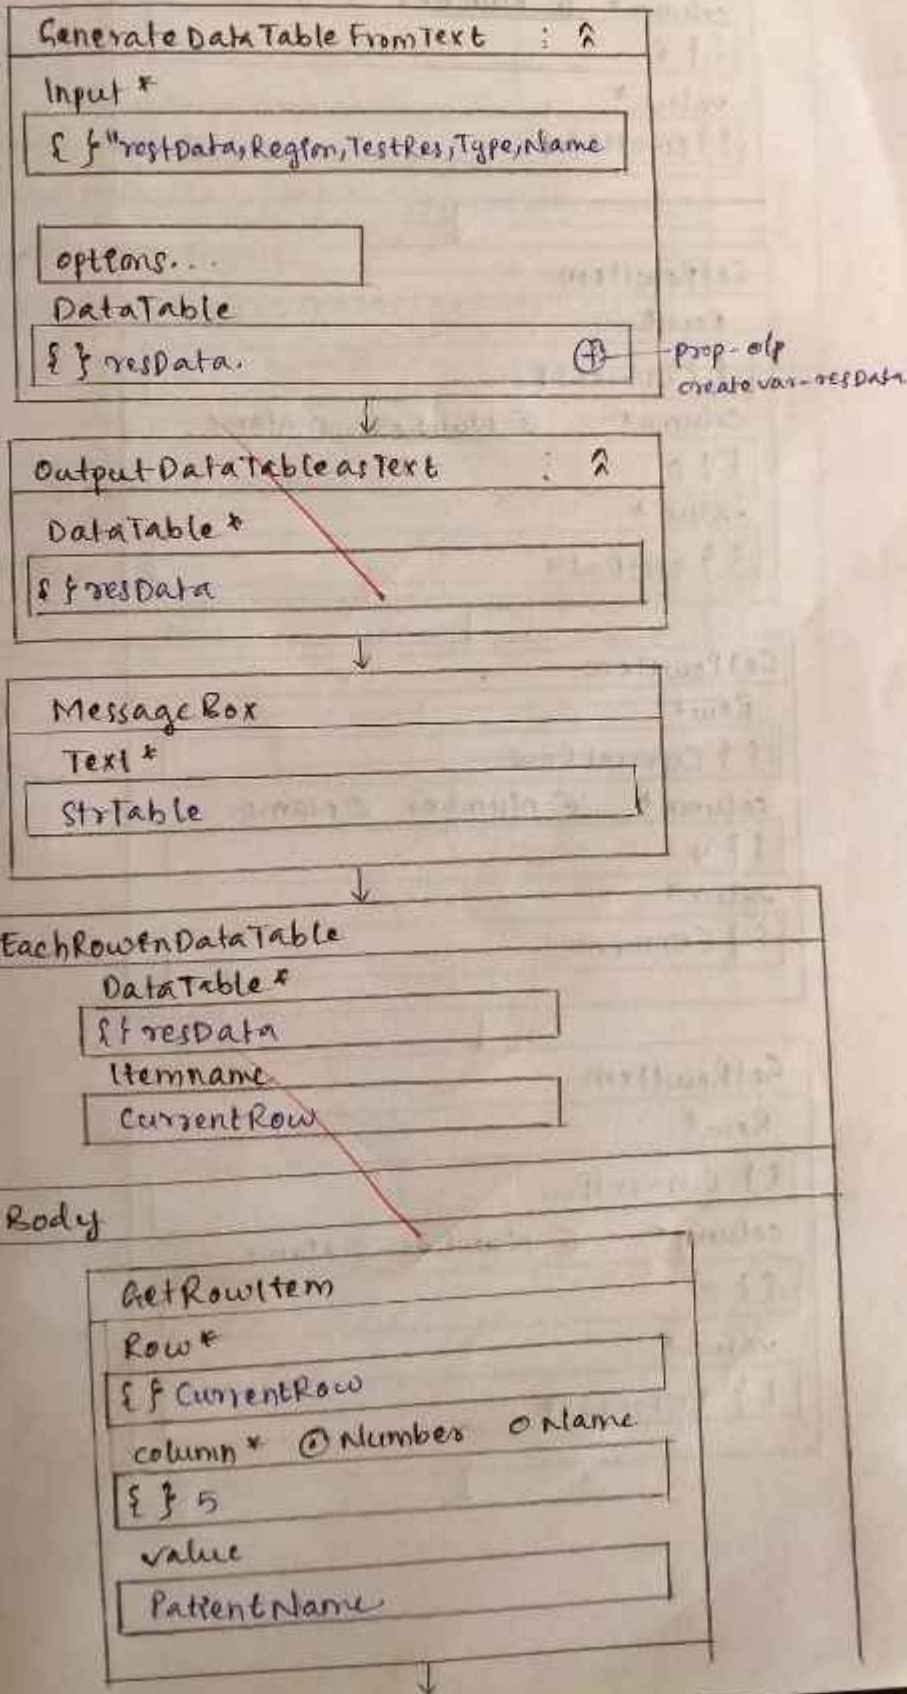 GenerateDataTableFromText : ^
Input *
{ } "restData, Region, TestRes, Type, Name
options...
DataTable
{ } resData. ⊕ prop-o/p
create var-resData
OutputDataTableasText : ^
DataTable *
{ } resData
MessageBox
Text *
StrTable
EachRowinDataTable
DataTable *
{ } resData
Itemname
CurrentRow
Body
GetRowItem
Row *
{ } CurrentRow
column * ⊙ Number ○ Name
{ } 5
value
PatientName